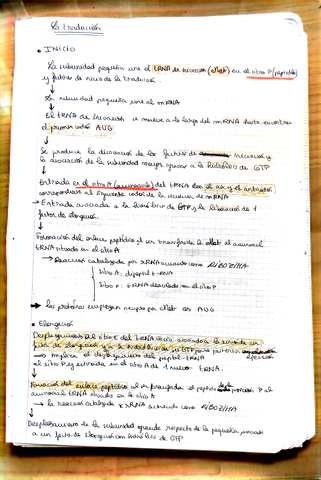 La traducción
• INICIO
La subunidad pequeña une el tRNA de iniciación (eMet) en el sitio P (peptidilo)
y factor de inicio de la traducción.
↓
La subunidad pequeña se une al mRNA
↓
El tRNA de iniciación se mueve a lo largo del mRNA hasta encontrar el
primer codón AUG
↓
Se produce la disociación de los factores de iniciación y
la asociación de la subunidad mayor gracias a la hidrólisis de GTP
↓
Entrada en el sitio A (aminoacilo) del tRNA con el aa y el anticodón
correspondiente al siguiente codón de la secuencia de mRNA
→ Entrada asociada a la hidrólisis de GTP y la liberación de 1
factor de elongación.
↓
Formación del enlace peptídico al ser transferida la eMet al aminoacil
tRNA situado en el sitio A
→ Reacción catalizada por rRNA actuando como RIBOZIMA
Sitio A: dipeptidil-tRNA
Sitio P: tRNA desacilado en el sitio P
→ las proteínas empiezan siempre por eMet es AUG
• Elongación
Desplazamiento al sitio E del tRNA vacío
→ implica el desplazamiento del peptil-tRNA
al sitio P y entrada en el sitio A de 1 nuevo tRNA.
↓
Formación del enlace peptídico al ser transferido el péptido de la posición P al
aminoacil tRNA situado en el sitio A
→ la reacción catalizada x rRNA actuando como RIBOZIMA
↓
Desplazamiento de la subunidad grande respecto de la pequeña, asociado
a un factor de elongación con hidrólisis de GTP